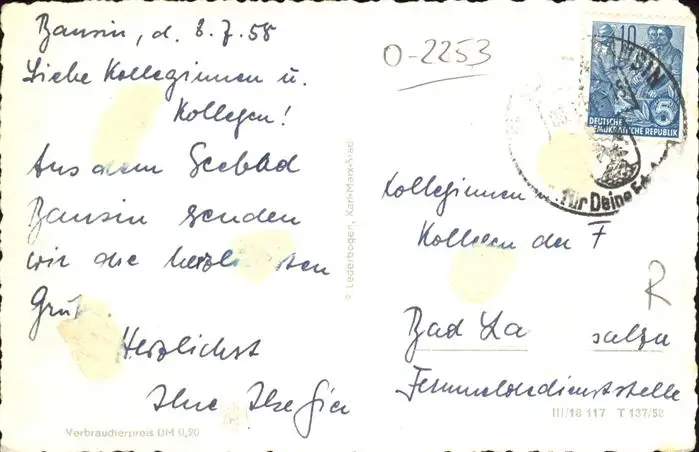 Bansin, d. 8.7.58
Liebe Kolleginnen u.
Kollegen!
Aus dem Seebad
Bansin senden
wir die herzlichsten
Grüß
Herzlichst
Ihre Ilse
Verbraucherpreis DM 0,20
© Lederbogen, Karl-Marx-Stadt
O-2253
10
5
DEUTSCHE
DEMOKRATISCHE REPUBLIK
ANSIN
für Deine
Kolleginnen
Kollegen der F
R
Bad La salza
Fernmeldedienststelle
III/18 117 T 137/58